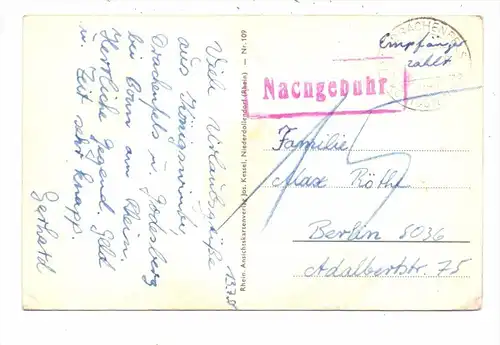 Viele Urlaubsgrüße
aus Königswinter,
Drachenfels u. Godesberg
bei Bonn am Rhein.
Herrliche Gegend. Geld
u. Zeit sehr knapp.
Gerhard
13.7.58
Rhein. Ansichtskartenverlag Jos. Kessel, Niederdollendorf (Rhein) – Nr. 109
DRACHENFELS
Empfänger
zahlt
Nachgebühr
15
Familie
Max Röthe
Berlin SO36
Adalbertstr. 75